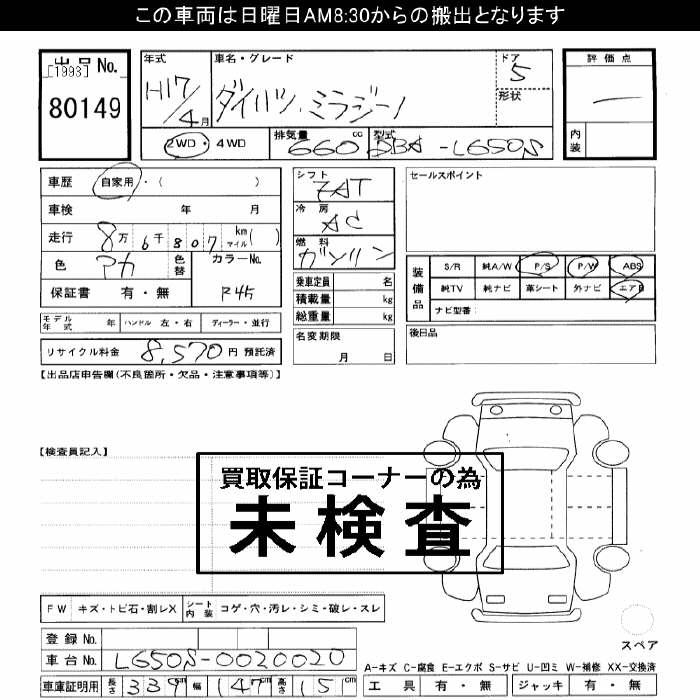 この車両は日曜日AM8:30からの搬出となります
出品No.
[1993]
80149
年式
H17/4月
車名・グレード
ダイハツ ミラジーノ
ドア
5
形状
評価点
内装
2WD・4WD
排気量
660cc
型式
DBA-L650S
車歴 自家用・( )
車検 年 月
走行 8万6千807km マイル( )
色
色替
カラーNo.
R45
保証書 有・無
シフト
冷房
AC
燃料
ガソリン
乗車定員 名
積載量 kg
総重量 kg
名変期限
月 日
セールスポイント
装備品
S/R 純A/W P/S P/W ABS
純TV 純ナビ 革シート 外ナビ エアB
ナビ型番:
後日品
モデル年式 年 ハンドル 左・右 ディーラー・並行
リサイクル料金 8,570円 預託済
【出品店申告欄(不良箇所・欠品・注意事項等)】
【検査員記入】
買取保証コーナーの為
未検査
FW キズ・トビ石・割レX シート内装 コゲ・穴・汚レ・シミ・破レ・スレ
登録No.
車台No. L650S-0020020
車庫証明用 長さ 339cm 幅 147cm 高さ 15cm
スペア
A-キズ C-腐食 E-エクボ S-サビ U-凹ミ W-補修 XX-交換済
工具 有・無 ジャッキ 有・無